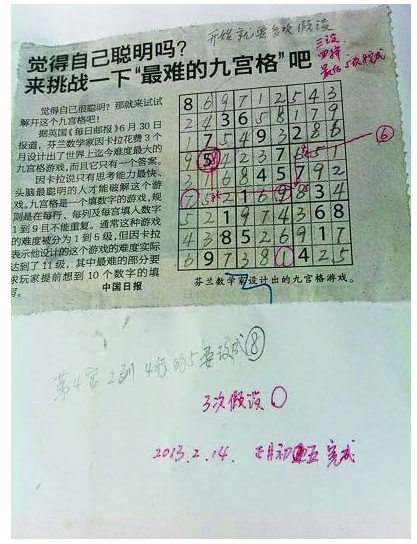 觉得自己聪明吗?
来挑战一下“最难的九宫格”吧
开始就要多次假设
三设
最后5次完成
觉得自己很聪明?那就来试试
解开这个九宫格吧!
据英国《每日邮报》6月30日
报道,芬兰数学家因卡拉花费3个
月设计出了世界上迄今难度最大的
九宫格游戏,而且它只有一个答案。
因卡拉说只有思考能力最快、
头脑最聪明的人才能破解这个游
戏。九宫格是一个填数字的游戏,规
则是在每行、每列及每宫填入数字
1到9且不能重复。通常这种游戏
的难度被分为1到5级,但因卡拉
表示他设计的这个游戏的难度实际
达到了11级,其中最难的部分要
求玩家提前想到10个数字的填
写。
中国日报
8 6 9 7 1 2 5 4 3
2 4 3 6 5 8 1 7 9
1 7 5 4 9 3 2 8 6
9 5 4 2 3 7
6 8 4 5 7 9 2
7 2 1 6 9 8 3 4
5 2 1 9 7 4 3 6 8
4 3 8 5 2 6 9 1 7
6 9 7 3 8 1 4 2 5
⑥
芬兰数学家设计出的九宫格游戏。
第4宫2列4行的5要设成⑧
3次假设
2013.2.14. 正月初五完成